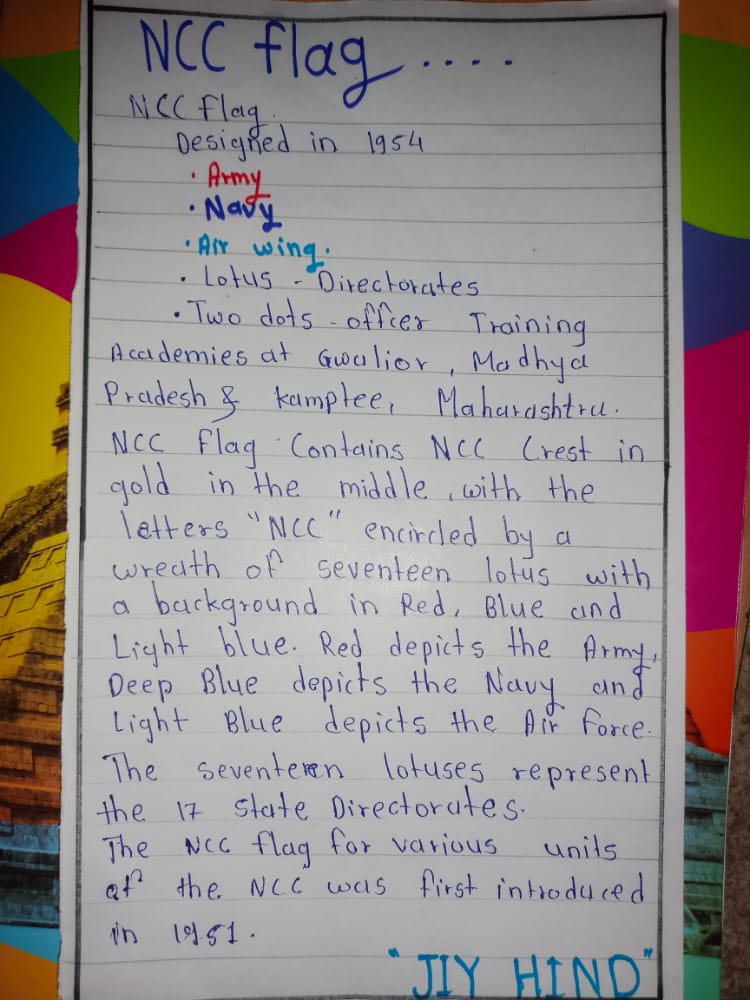 NCC flag ....
NCC flag.
Designed in 1954
· Army
· Navy
· Air wing.
· Lotus - Directorates
· Two dots - officer Training
Academies at Gwalior, Madhya
Pradesh & kamptee, Maharashtra.
NCC flag Contains NCC Crest in
gold in the middle, with the
letters "NCC" encircled by a
wreath of seventeen lotus with
a background in Red, Blue and
Light blue. Red depicts the Army,
Deep Blue depicts the Navy and
Light Blue depicts the Air Force.
The seventeen lotuses represent
the 17 State Directorates.
The NCC flag for various units
of the NCC was first introduced
in 1951.
"JIY HIND"